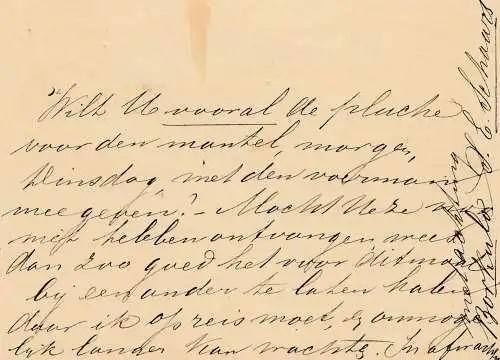 Wilt U vooral de pluche
voor den mantel, morgen,
Dinsdag, met den voerman
meegeven? - Mocht U deze n
niet hebben ontvangen wees
dan zoo goed het voor ditmaal
bij een ander te laten halen
daar ik op reis moet, & onmoge
lijk langer kan wachten. In afwacht
Hoogachtend
S. E. Schaars